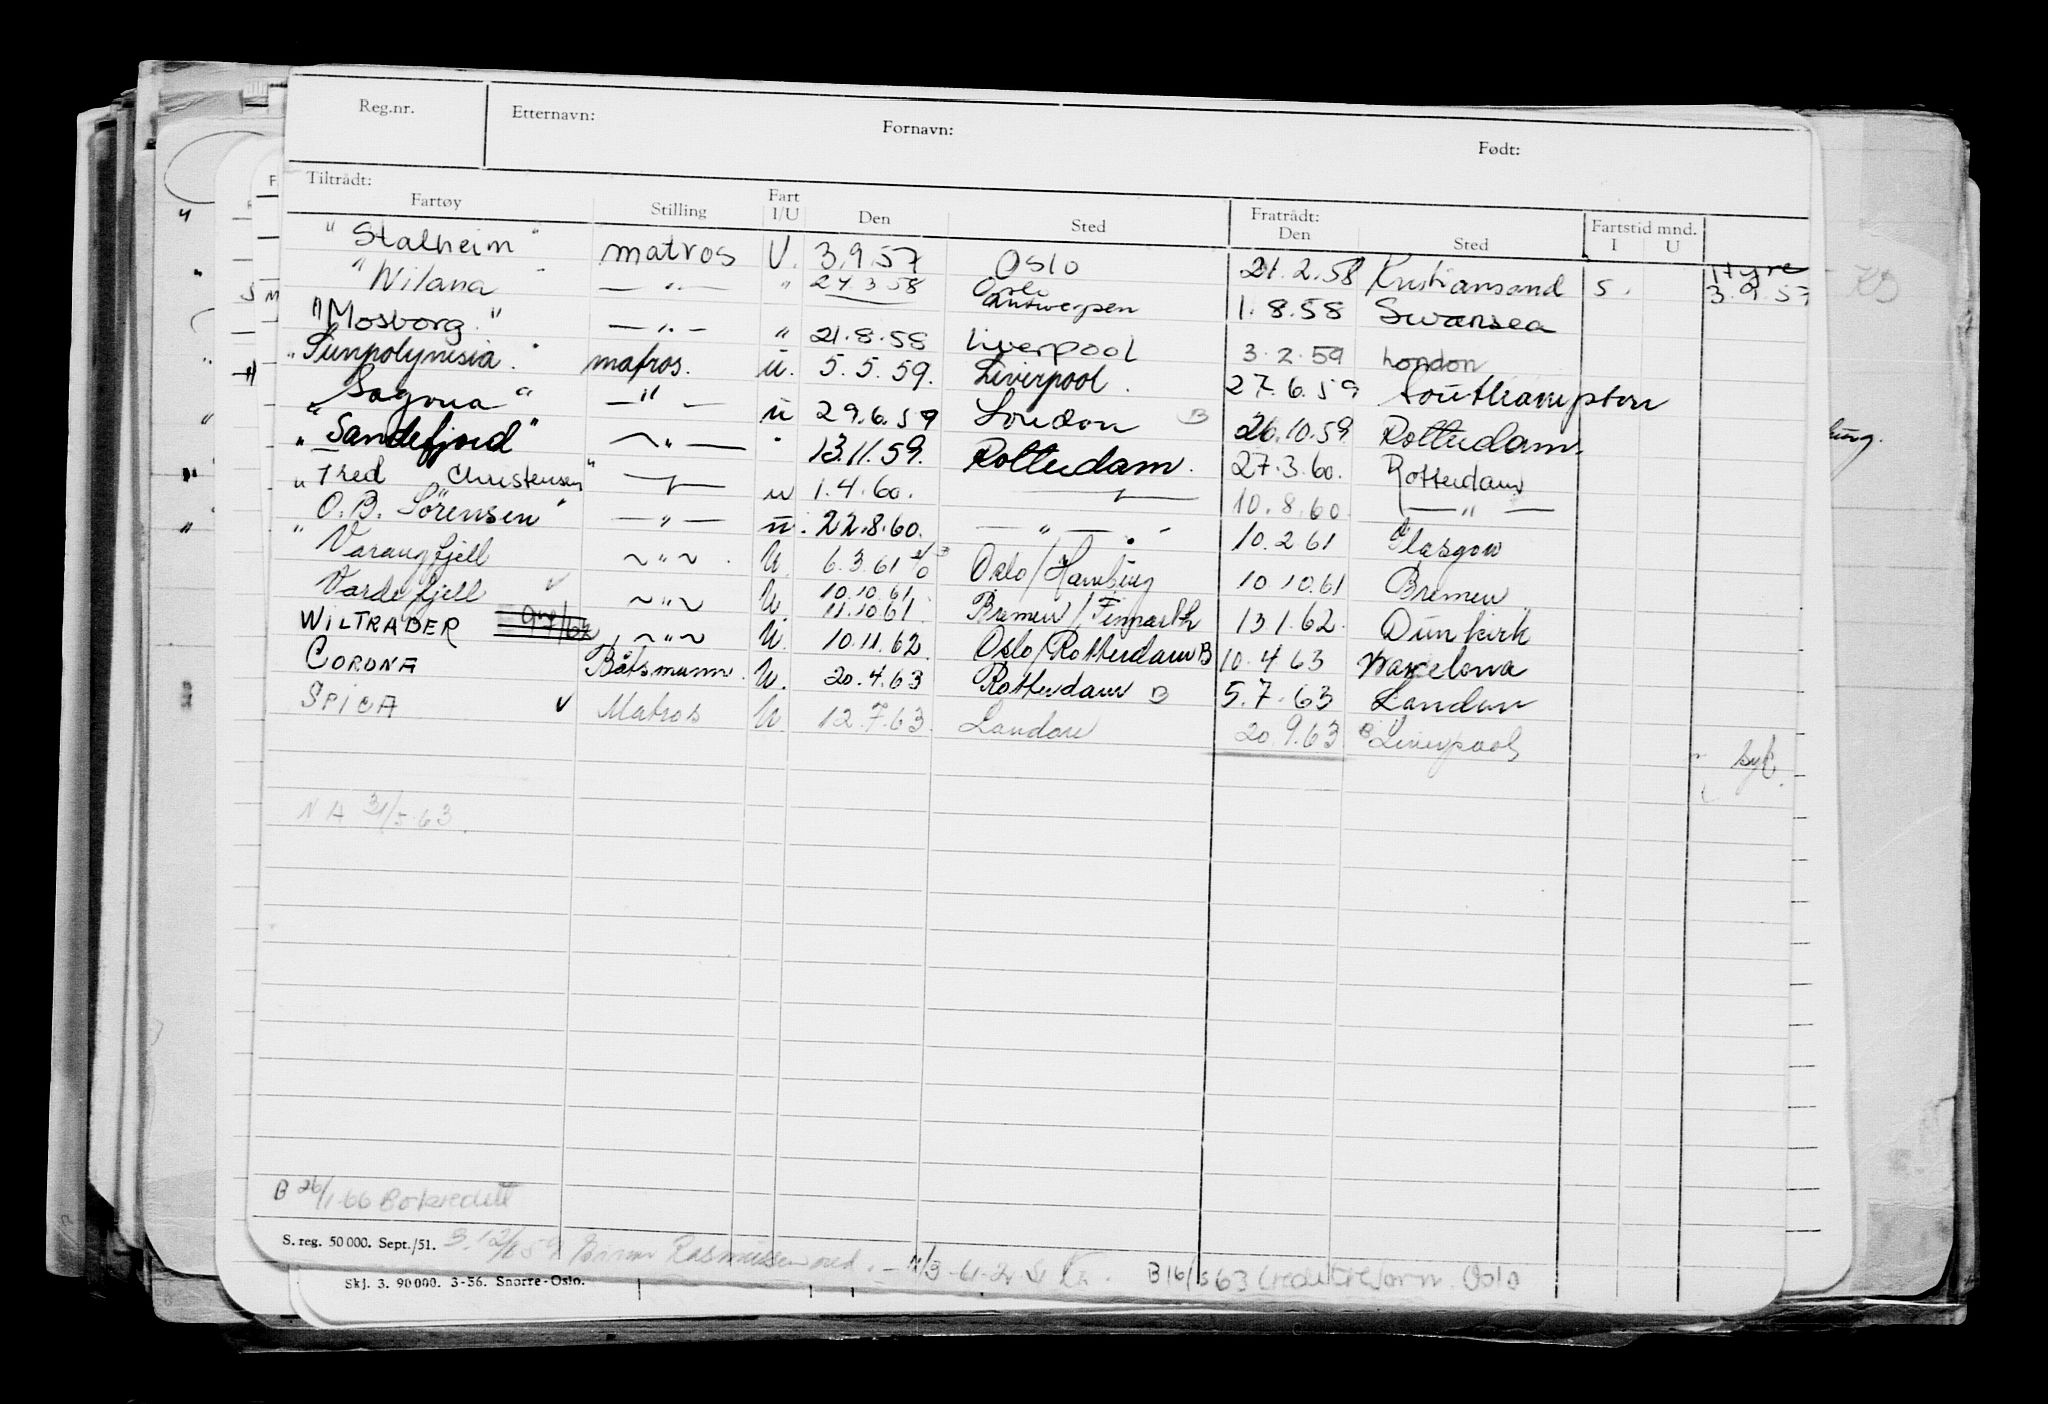 Reg.nr. Etternavn: Fornavn: Født:
Tiltrådt: Fratrådt:
Fartøy Stilling Fart I/U Den Sted Den Sted Fartstid mnd. I U
"Stalheim" matros U. 3.9.57 Oslo 21.2.58 Kristiansand S. Hyre 3.9.57
"Wilana" — " — " 24 3 58 Oslo Antwerpen 1.8.58 Swansea
"Mosborg." — " — " 21.8.58 Liverpool 3.2.59 London
"Sunpolynesia." matros. u. 5.5.59. Liverpool. 27.6.59 Southampton
"Sagona" — " — u 29.6.59 London B 26.10.59 Rotterdam.
"Sandefjord" — " — " 13.11.59. Rotterdam. 27.3.60. Rotterdam
"Fred Christensen" — " — u 1.4.60. — " — 10.8.60. — " —
O.B. Sörensen" — " — u. 22.8.60. — " — 10.2.61 Glasgow
" Varangfjell ~ " ~ U. 6.3.61 Oslo/Hamburg 10.10.61 Bremen
Vardefjell ✓ ~ " ~ U. 10.10.61. 11.10.61. Bremen/Finnarth 13 1.62. Dunkirk
WILTRADER ~ " ~ U. 10.11.62. Oslo/Rotterdam B 10.4 63 Barcelona
CORONA Båtsmann. U. 20.4.63 Rotterdam B 5.7.63 London
SPICA ✓ Matros U. 12.7.63. London 20.9.63 B Liverpool syk.
NA 31/5.63.
B 26/1-66 Bokreditt
S. reg. 50 000. Sept./51. Rasmussen B 16/5 63 Kreditreform. Oslo
Skj. 3. 90 000. 3-56. Snorre-Oslo.